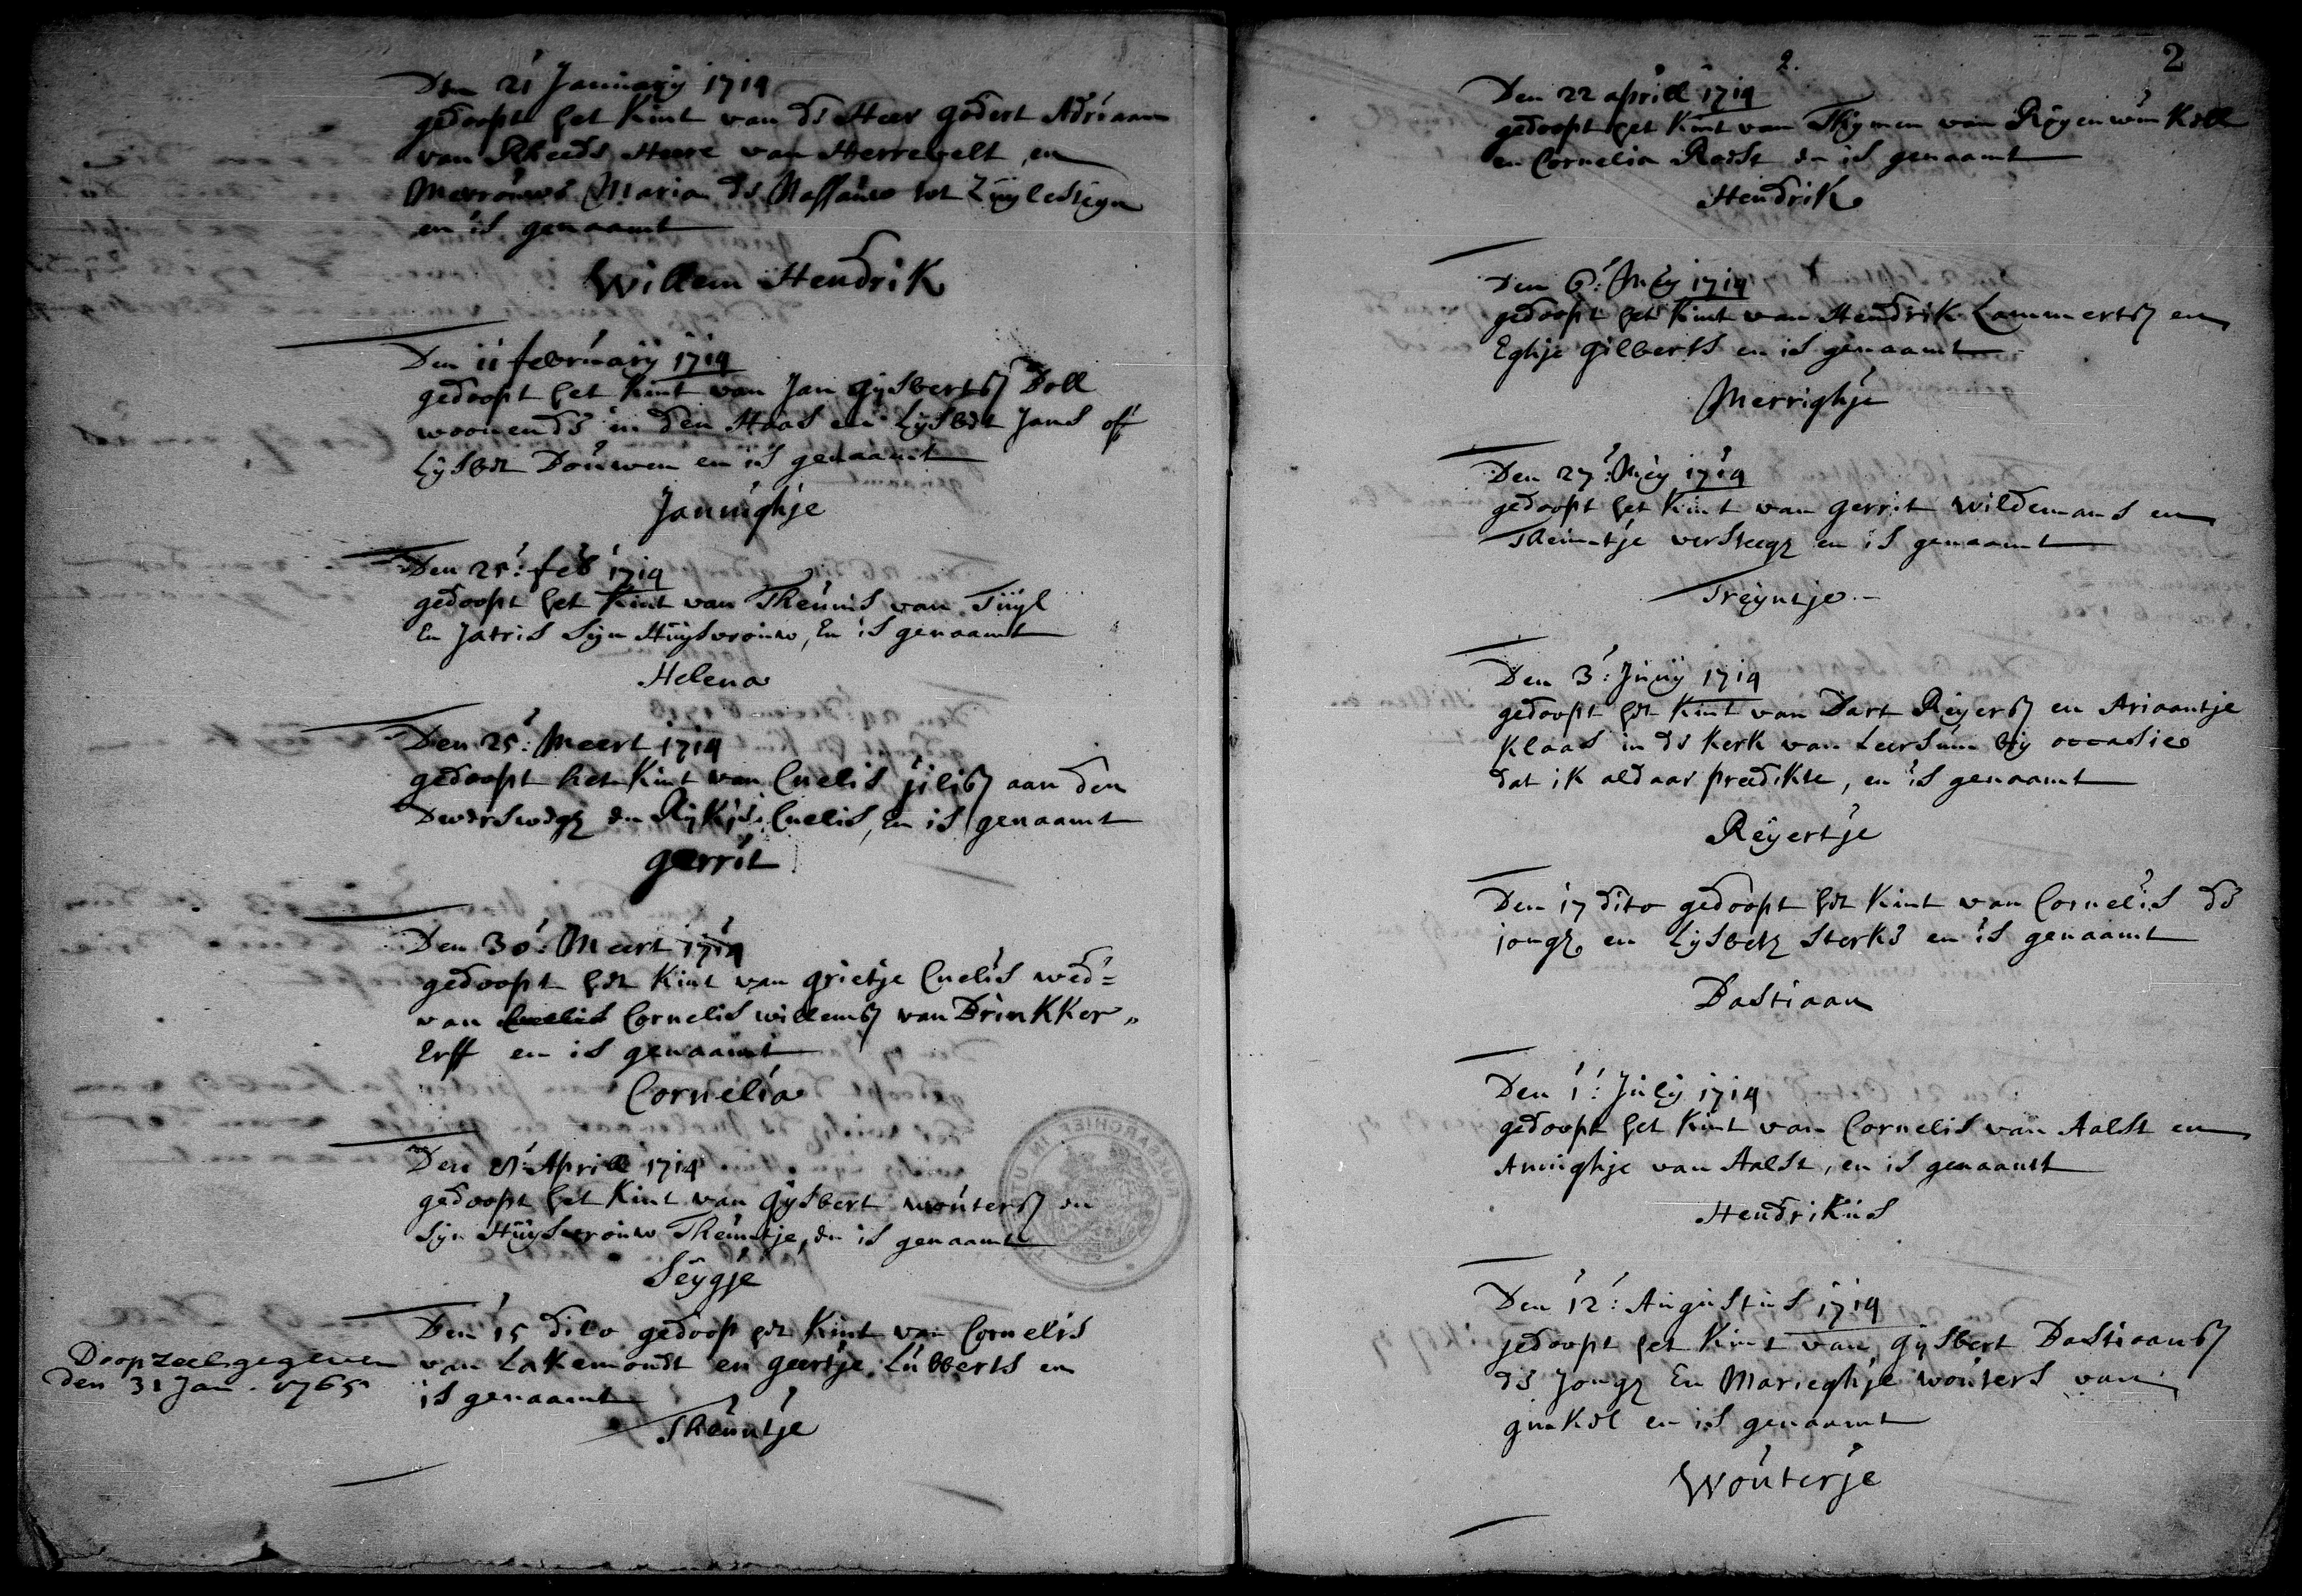 Den 21 Januarij 1714
gedoopt het Kint van de Heer godert Adriaan
van Rheede Heere van Herrevelt, en
Merrouwe Maria de Nassauw tot Zuylesteyn
en is genaamt
Willem Hendrik
Den 11 februarij 1714
gedoopt het Kint van Jan gijsbertsz Boll
woonende in den Haas en Lijsbet Jans off
Lijsbet Douwen en is genaamt
Janneghje
Den 25: feb 1714
gedoopt het Kint van Theunis van Tuyl
En Jatris Sijn Huysvrouw, En is genaamt
Helena
Den 25: Meert 1714
gedoopt het Kint van Cnelis jilisz aan den
Dwerswegh en Rijkje Cnelis, En is genaamt
gerrit
Den 30: Meert 1714
gedoopt het Kint van grietje Cnelis wed=
van Cornelis willemsz van Drinkker„
Erff en is genaamt
Cornelia
Den Aprill 1714
gedoopt het Kint van gijsbert woutersz en
Sijn Huysvrouw Theuntje, en is genaamt
Seygje
Den 15 dito gedoop het Kint van Cornelis
van Lakemondt en geertje Lubberts en
is genaamt
Theuntje
Doopzeel gegeven
den 31 Jan. 1765
2.
2
Den 22 aprill 1714
gedoopt het Kint van Thijmen van Roijenwinkoll
en Cornelia Roest en is genaamt
Hendrik
Den 6: Mey 1714
gedoopt het Kint van Hendrik Lammertsz en
Eghje gilberts en is genaamt
Merrighje
Den 27: Mey 1714
gedoopt het Kint van gerrit wildemans en
Theuntje versteegh en is genaamt
Treyntje
Den 3: Junij 1714
gedoopt het Kint van Bart Reyersz en Ariaantje
Klaas in de Kerk van Leersum bij occasie
dat ik aldaar preedikte, en is genaamt
Reyertje
Den 17 dito gedoopt het Kint van Cornelis de
jongh en Lijsbeth Sterke en is genaamt
Bastiaan
Den 1: Julij 1714
gedoopt het Kint van Cornelis van Aalst en
Anneghje van Aalst, en is genaamt
Hendrikus
Den 12: Augustus 1714
gedoopt het Kint van gijsbert Bastiaansz
de Jongh En Marieghje wouters van
ginkel en is genaamt
Wouterje